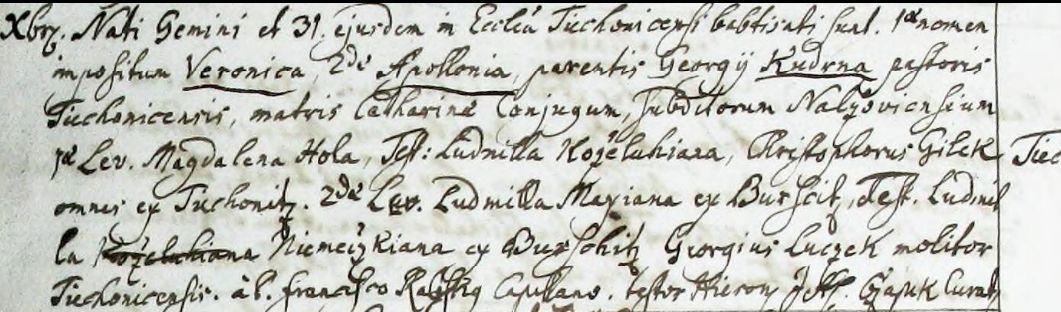 Xbrĵ. Nati Gemini et 31. ejusdem in Ecclia Tiechonicensi babtisati sunt. 1æ nomen
impositum Veronica, 2dæ Apollonia, parentis Georgij Kudrna pastoris
Tiechonicensis, matris Catharinæ Conjugum, subditorum Nalzoviensium
1æ Lev. Magdalena Hola, Test: Ludmilla Kozieluhiana, Christophorus Gilek, Tiec
omnes ex Tiechonitz. 2dæ Lev. Ludmilla Maxiana ex Burscitz, Test. Ludmil
la Niemeczkiana ex Burschitz Georgius Luczek molitor
Tiechonicensis. à P. Francisco Capellano. testor Hieron Curatus